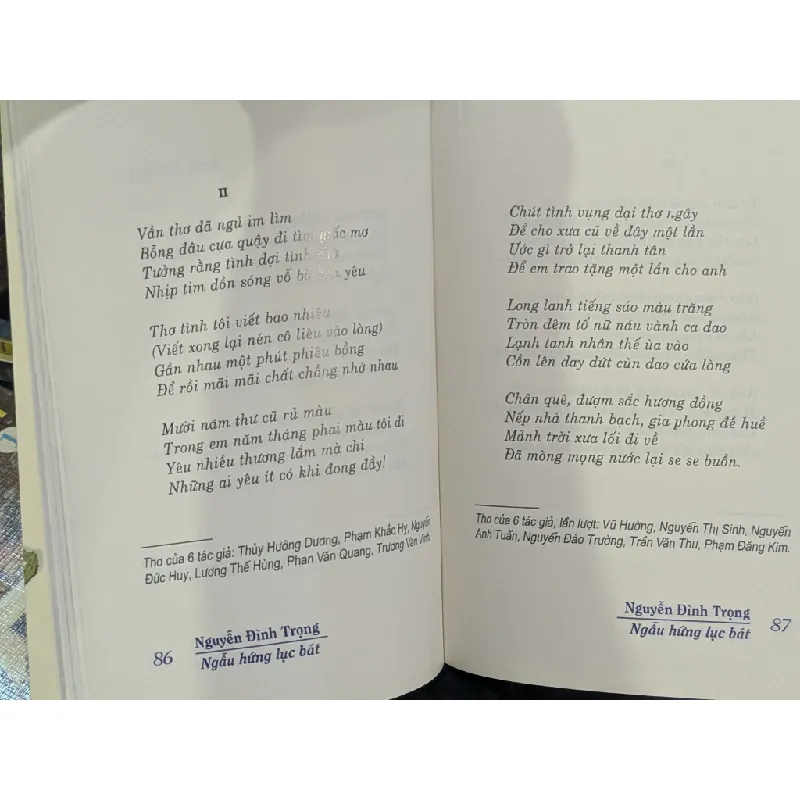 II
Vần thơ đã ngủ im lìm
Bỗng đâu cựa quậy đi tìm giấc mơ
Tưởng rằng tình đợi tình
Nhịp tim dồn sóng vỗ bờ yêu
Thơ tình tôi viết bao nhiêu
(Viết xong lại nén cô liêu vào lòng)
Gần nhau một phút phiêu bồng
Để rồi mãi mãi chất chồng nhớ nhau
Mười năm thư cũ rũ màu
Trong em năm tháng phai màu tôi đi
Yêu nhiều thương lắm mà chi
Những ai yêu ít có khi đong đầy!
Thơ của 6 tác giả: Thùy Hương Dương, Phạm Khắc Hy, Nguyễn
Đức Huy, Lương Thế Hùng, Phan Văn Quang, Trương Văn Vinh
86
Nguyễn Đình Trọng
Ngẫu hứng lục bát
Chút tình vụng dại thơ ngây
Để cho xưa cũ về đây một lần
Ước gì trở lại thanh tân
Để em trao tặng một lần cho anh
Long lanh tiếng sáo màu trăng
Tròn đêm tố nữ náu vành ca dao
Lạnh tanh nhân thế ùa vào
Cồn lên day dứt cùn dao cứa lòng
Chân quê, đượm sắc hương đồng
Nếp nhà thanh bạch, gia phong đề huề
Mảnh trời xưa lối đi về
Đã mòng mọng nước lại se se buồn.
Thơ của 6 tác giả, lần lượt: Vũ Hường, Nguyễn Thị Sinh, Nguyễn
Anh Tuấn, Nguyễn Đào Trường, Trần Văn Thu, Phạm Đăng Kim.
Nguyễn Đình Trọng
Ngẫu hứng lục bát
87